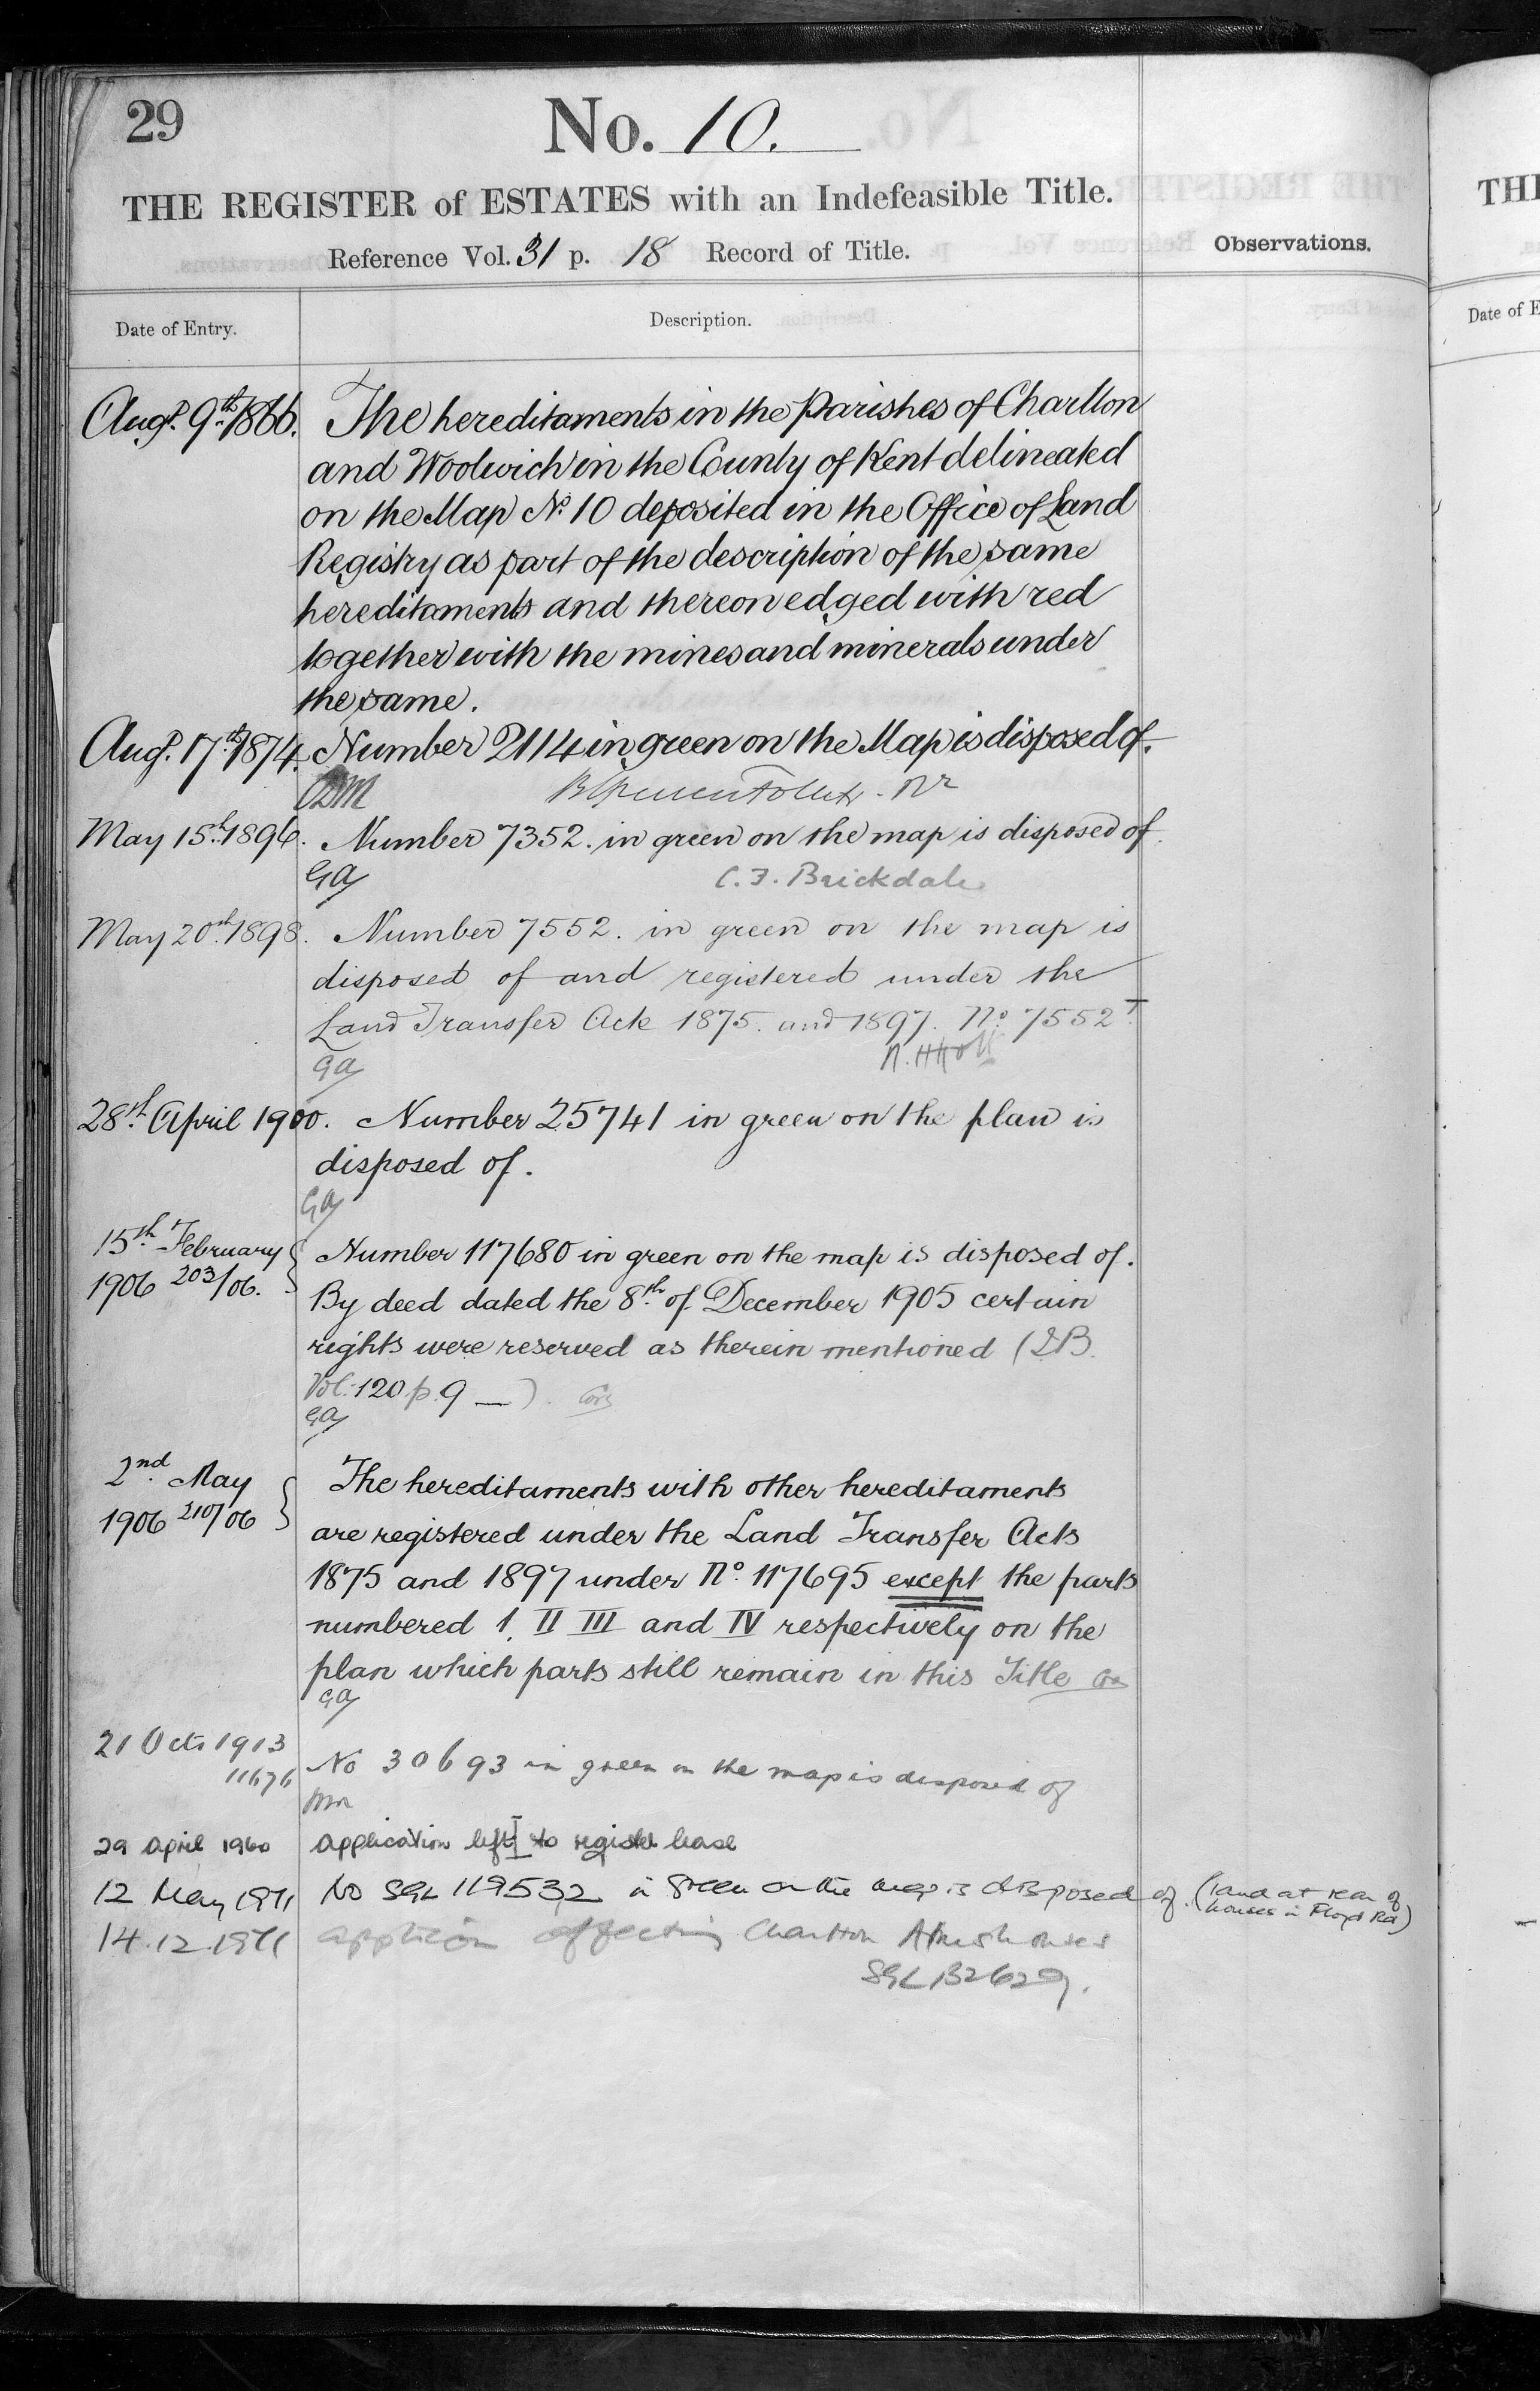 29
No. 10.
THE REGISTER of ESTATES with an Indefeasible Title.
Reference Vol. 31 p. 18 Record of Title.
Observations.
Date of Entry.
Description.
Augt. 9th 1866. The hereditaments in the Parishes of Charlton
and Woolwich in the County of Kent delineated
on the Map No. 10 deposited in the Office of Land
Registry as part of the description of the same
hereditaments and thereon edged with red
together with the mines and minerals under
the same.
Augt. 17th 1874. Number 2114 in green on the Map is disposed of.
May 15th 1896. Number 7352. in green on the map is disposed of.
GA C. F. Brickdale
May 20th 1898. Number 7552. in green on the map is
disposed of and registered under the
Land Transfer Acts 1875. and 1897. No. 7552 T.
GA
28th April 1900. Number 25741 in green on the plan is
disposed of.
GA
15th February
1906 203/06.
Number 117680 in green on the map is disposed of.
By deed dated the 8th of December 1905 certain
rights were reserved as therein mentioned (IB.
Vol. 120 p. 9 —).
GA
2nd May
1906 210/06
The hereditaments with other hereditaments
are registered under the Land Transfer Acts
1875 and 1897 under No. 117695 except the parts
numbered 1, II III and IV respectively on the
plan which parts still remain in this Title
GA
21 Oct 1913
11676
No 30693 in green on the map is disposed of
29 April 1960 application left to register lease
12 May 1971 No SGL 119532 in green on the map is disposed of. (land at rear of
houses in Floyd Rd)
14.12.1971 affecting Charlton Almshouses
SGL B2629.
THE
Date of E